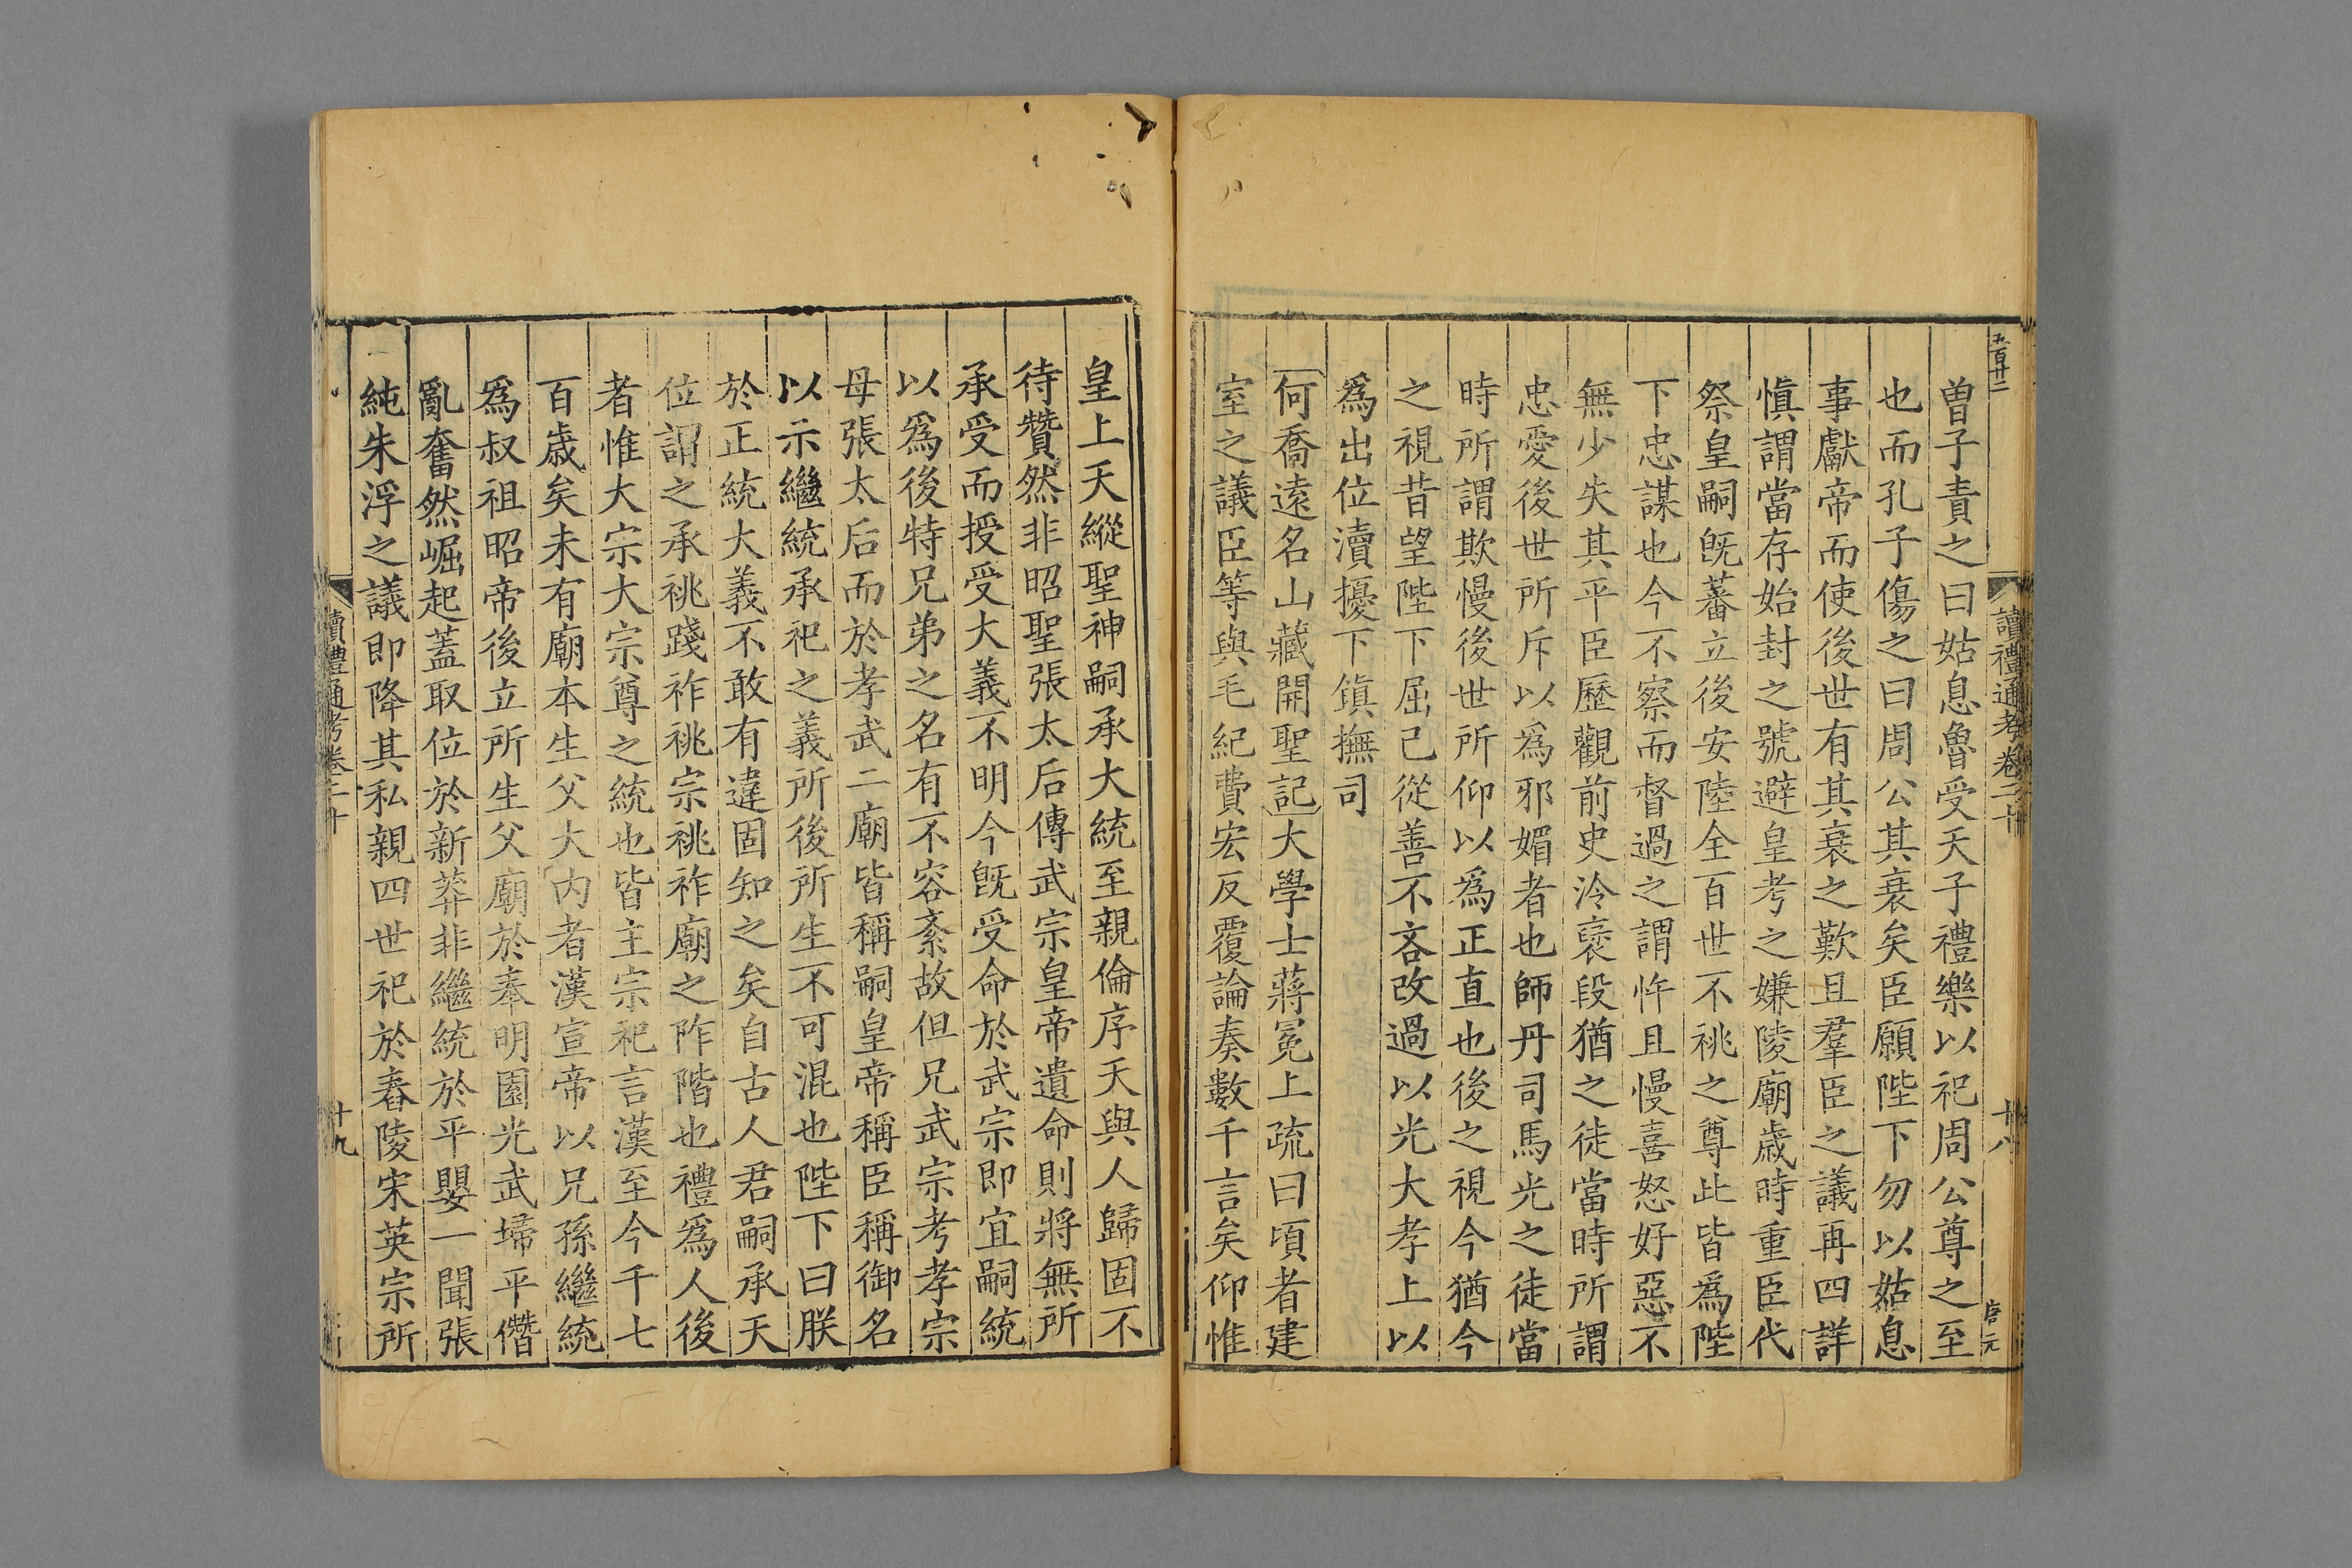 五百廿二
讀禮通考卷二十
十八
唐元
曾子責之曰姑息魯受天子禮樂以祀周公尊之至
也而孔子傷之曰周公其衰矣臣願陛下勿以姑息
事獻帝而使後世有其衰之歎且羣臣之議再四詳
愼謂當存始封之號避皇考之嫌陵廟歲時重臣代
祭皇嗣旣蕃立後安陸全百世不祧之尊此皆爲陛
下忠謀也今不察而督過之謂忤且慢喜怒好惡不
無少失其平臣歷觀前史泠褒段猶之徒當時所謂
忠愛後世所斥以爲邪媚者也師丹司馬光之徒當
時所謂欺慢後世所仰以爲正直也後之視今猶今
之視昔望陛下屈己從善不吝改過以光大孝上以
爲出位瀆擾下鎮撫司
何喬遠名山藏開聖記大學士蔣冕上疏曰頃者建
室之議臣等與毛紀費宏反覆論奏數千言矣仰惟
皇上天縱聖神嗣承大統至親倫序天與人歸固不
待贊然非昭聖張太后傳武宗皇帝遺命則將無所
承受而授受大義不明今旣受命於武宗即宜嗣統
以爲後特兄弟之名有不容紊故但兄武宗考孝宗
母張太后而於孝武二廟皆稱嗣皇帝稱臣稱御名
以示繼統承祀之義所後所生不可混也陛下曰朕
於正統大義不敢有違固知之矣自古人君嗣承天
位謂之承祧踐祚祧宗祧祚廟之阼階也禮爲人後
者惟大宗大宗尊之統也皆主宗祀言漢至今千七
百歲矣未有廟本生父大內者漢宣帝以兄孫繼統
爲叔祖昭帝後立所生父廟於奉明園光武埽平僭
亂奮然崛起蓋取位於新莽非繼統於平嬰一聞張
純朱浮之議即降其私親四世祀於舂陵宋英宗所
讀禮通考卷二十
十九